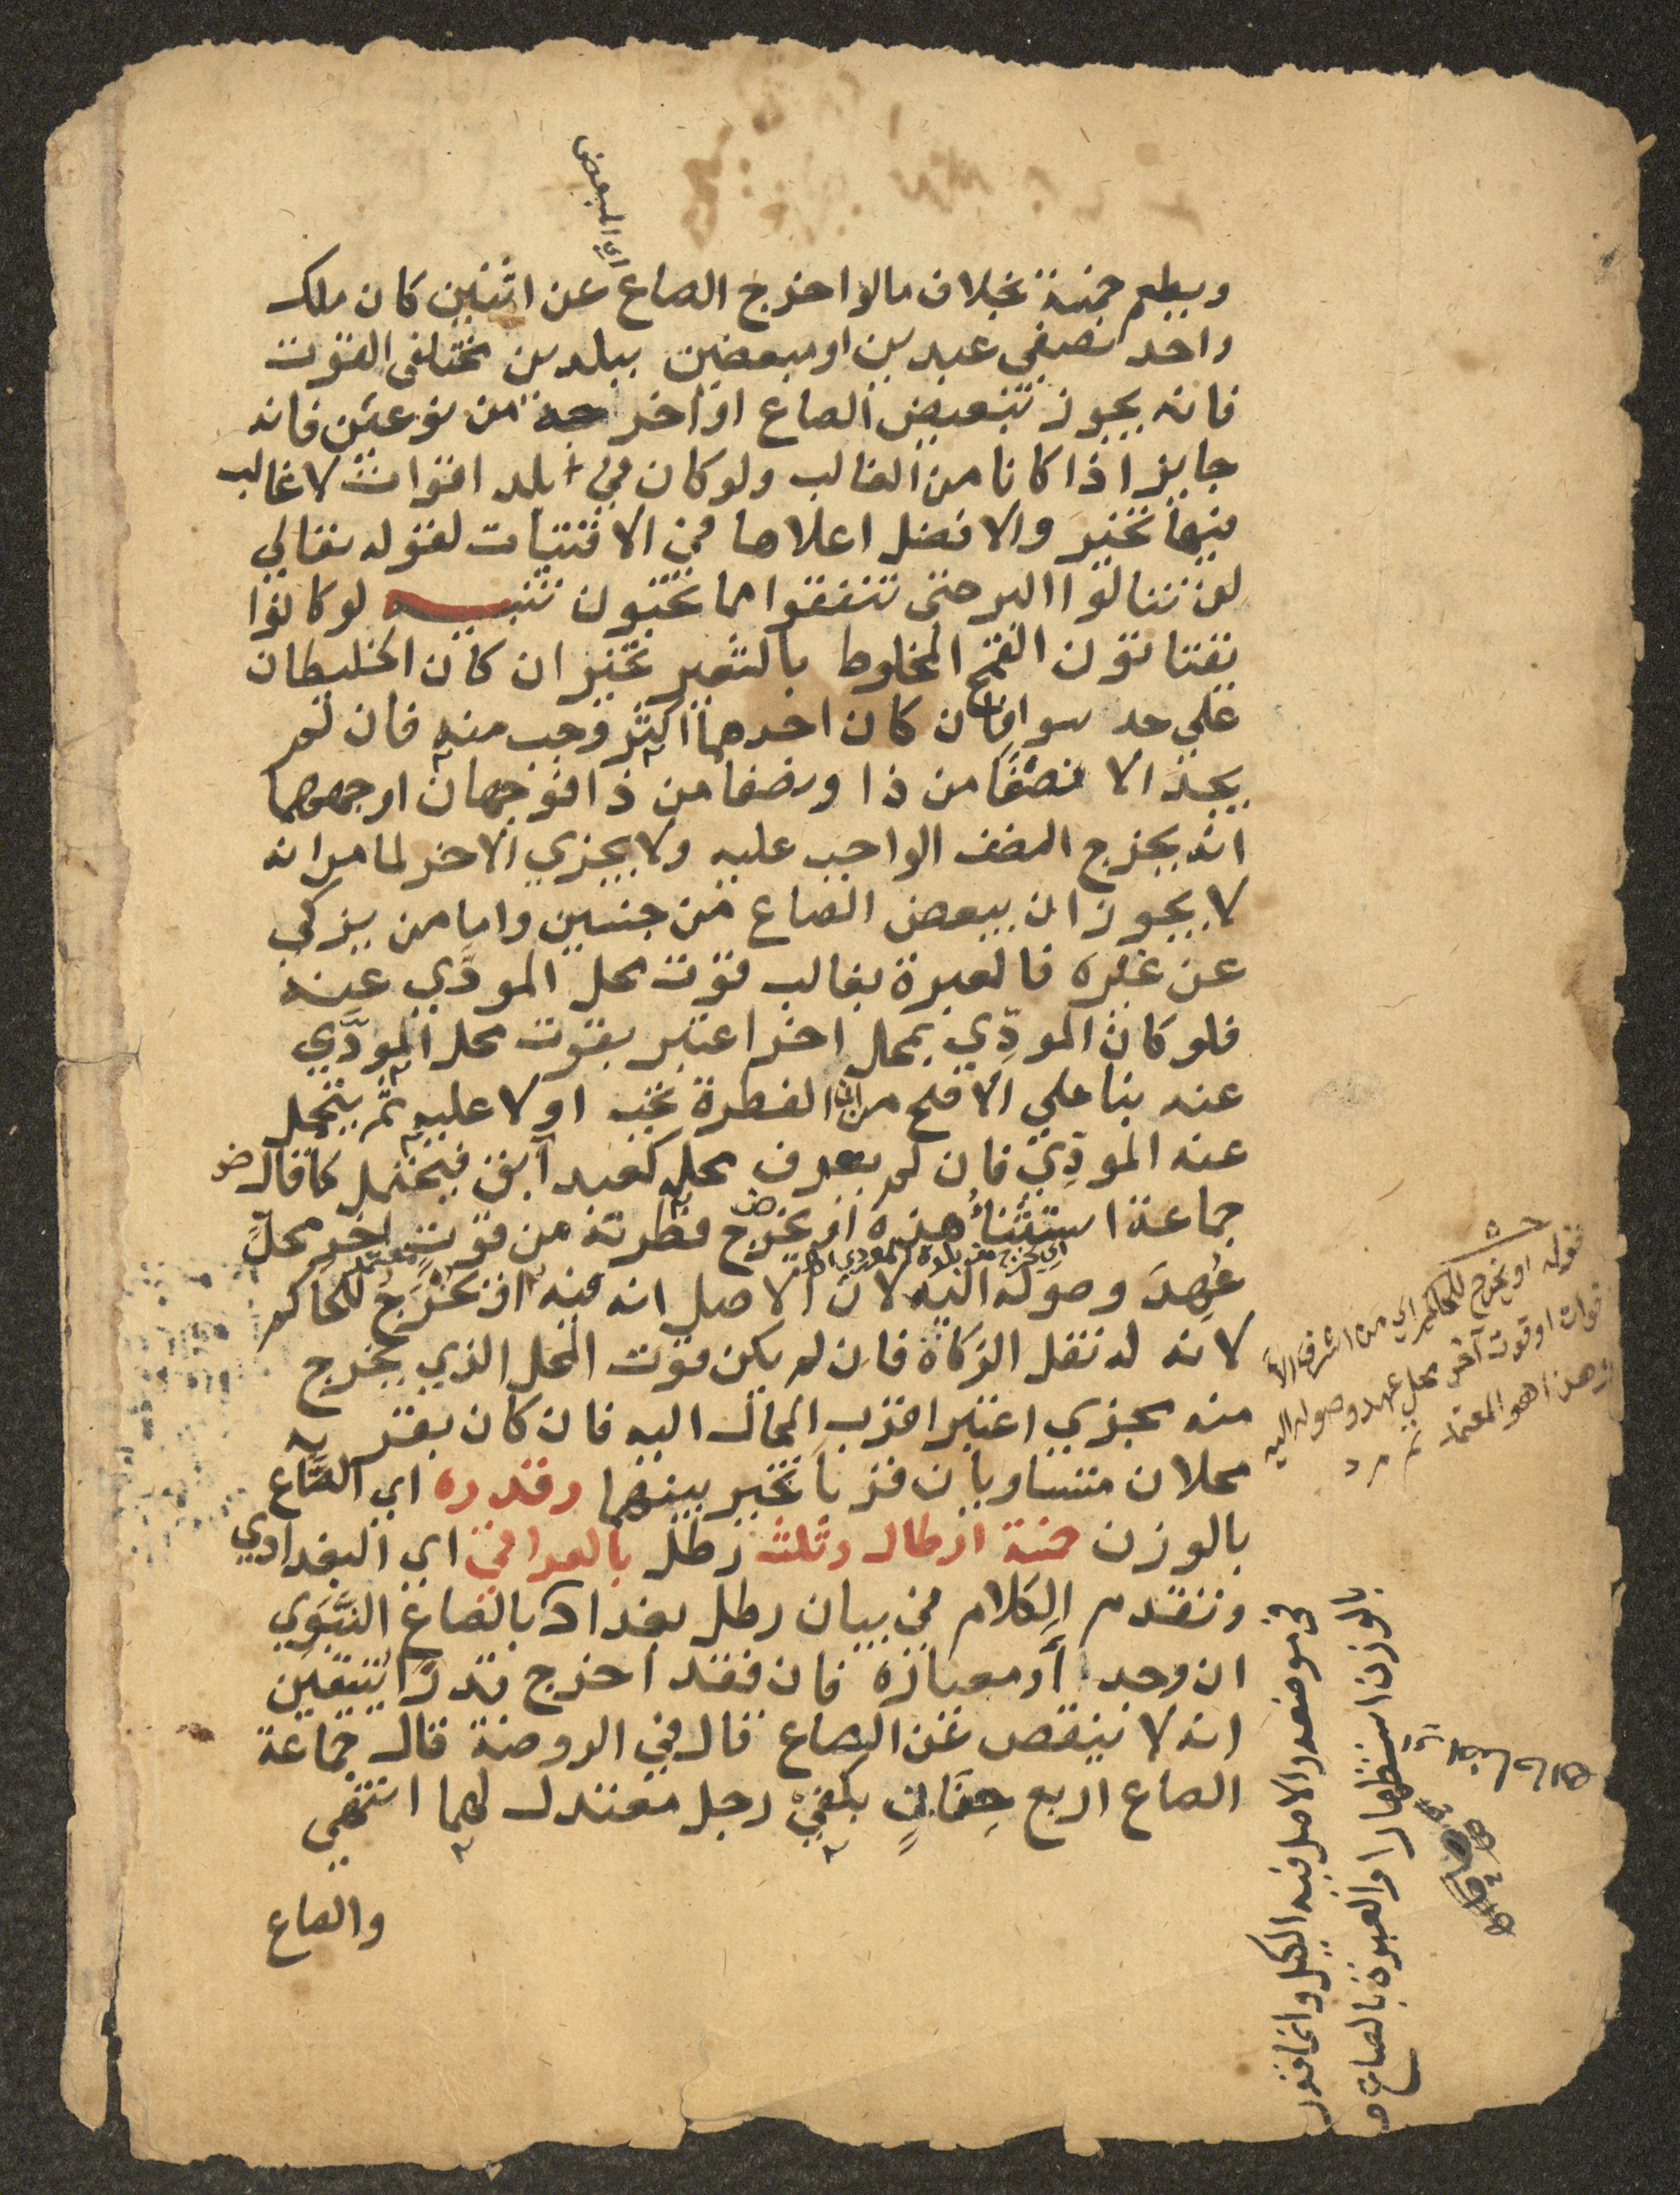 اي المبعض
ويطعم خمسة بخلاف مالو اخرج الصاع عن اثنين كان ملك
واحد نصفي عبدين او مبعضين ببلدين مختلفي القوت
فانه يجوز تبعيض الصاع او اخرجه من نوعين فانه
جايز اذا كانا من الغالب ولو كان في بلد اقوات لا غالب
فيها تخير والافضل اعلاها في الاقتيات لقوله تعالي
لن تنالوا البر حتى تنفقوا مما تحبون تنبيه لو كانوا
يقتاتون القمح المخلوط بالشعير تخير ان كان الخليطان
علي حد سوا فان كان احدهما اكثر وجب منه فان لم
يجد الا نصفا من ذا ونصفا من ذا فوجهان اوجههما
انه يخرج النصف الواجب عليه ولا يجزي الاخر لما مر انه
لا يجوز ان يبعض الصاع من جنسين واما من يزكي
عن غيره فالعبرة بغالب قوت محل المودَّي عنه
فلو كان المودِّي بمحل اخر اعتبر بقوت محل المودَّي
عنه بنا علي الاصح من ان الفطرة تجب اولا عليه ثم يتحمل
عنه المودِّي فان لم يعرف محله كعبد آبق فيحتمل كما قال
جماعة استثناء هذه او يخرج فطرته من قوت اخر محلٍّ
اي يخرج من بلده المودي
عُهِدَ وصوله اليه لان الاصل انه فيه او يخرج للحاكم
لانه له نقل الزكاة فان لم يكن قوت المحل الذي يخرج
منه مجزي اعتبر اقرب المحال اليه فان كان بقربه
محلان متساويان قربا تخير بينهما وقدره اي الصَّاع
بالوزن خمسة ارطال وثلث رطل بالعراقي اي البغدادي
وتقدم الكلام في بيان رطل بغداد بالصاع النَّبَوي
ان وجد او معياره فان فقد اخرج قدرا يتيقن
انه لا ينقص عن الصاع قال في الروضة قال جماعة
الصاع اربع حفنات بكفيْ رجل معتدل لهما انتهي
والصاع
قوله او يخرج للحاكم اي من اشرف الا
قوات او قوت آخر محل عهد وصوله اليه
هذا هو المعتمد م ر
قوله بالوزن استظهارا والعبرة بالصاع